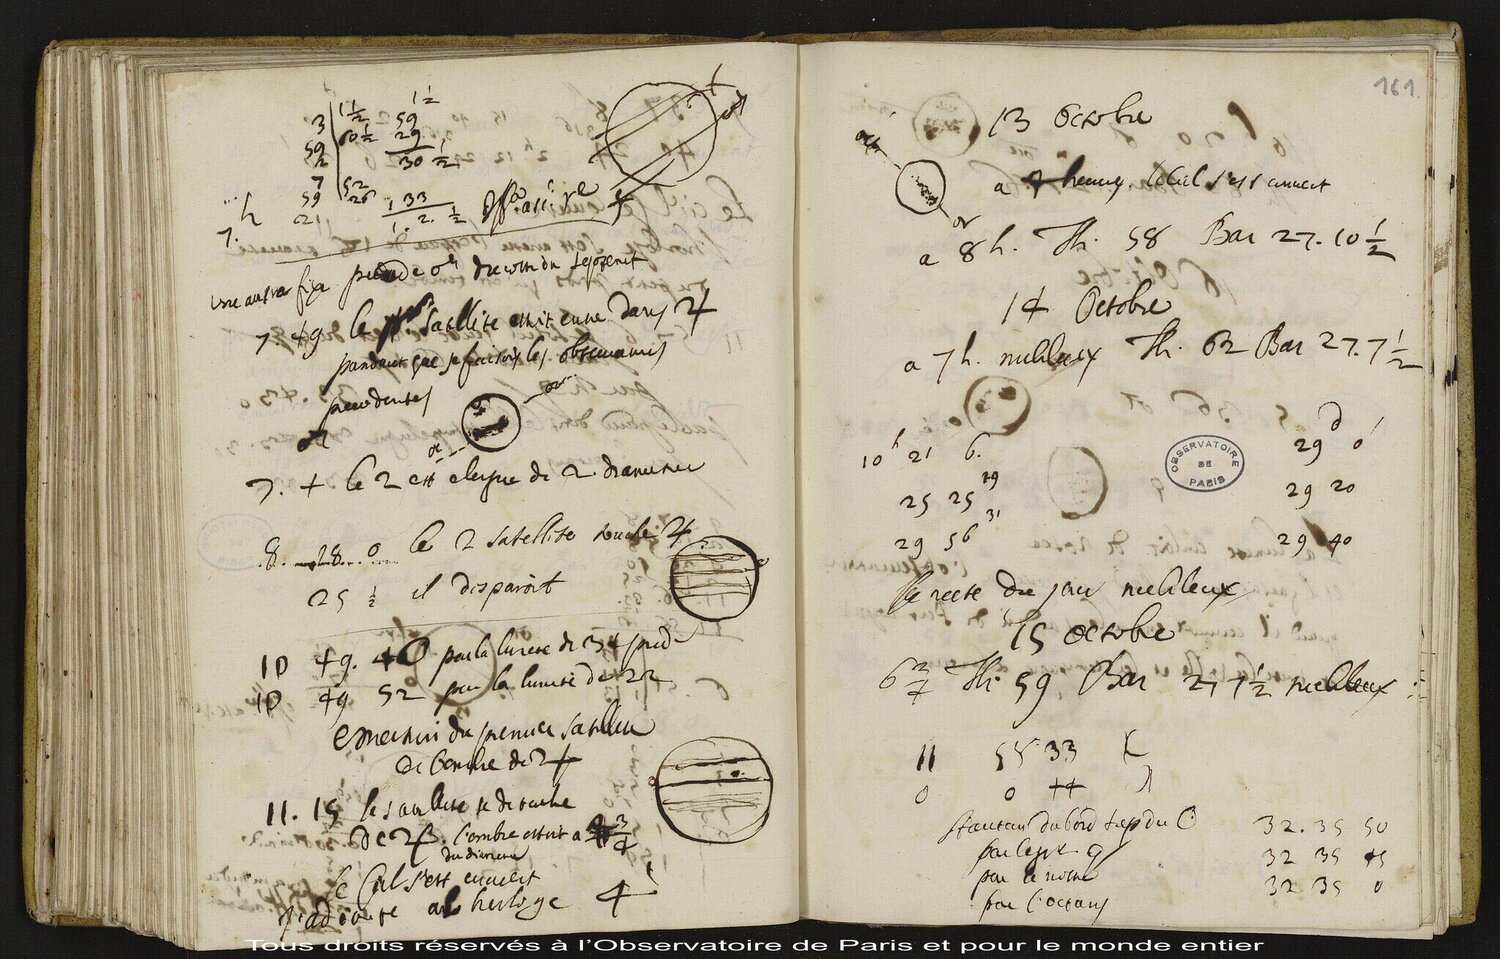 3 1 1/2 59 1 1/2
59 60 1/2 29
1/2 30 1/2
7 52
7. h 59 26 133
21 1. 2. 1/2
7. 49 le satellite estoit entre dans ♃
pendant que se faisois les observations
precedentes
or
or
7. + le 2 est eloigné de 2 diametres
8. 28 0 le 2 satellite touche ♃
25 1/2 il disparoit
10 49. 40 par la lunete de 34 pied
10 49 52 par la lunete de 22
emersion du premier satellite
de l'ombre de ♃
11. 15 le satellite se detache
de ♃ l'ombre estoit a 3/4
du diametre
le Ciel s'est couvert
J'adjoute a l'horloge 4'
161
13 Octobre
occ
or
a 7 heures le Ciel s'est couvert
a 8 h. Th. 58 Bar 27. 10 1/2
14 Octobre
a 7 h. nubileux Th. 62 Bar 27. 7 1/2
10 h 21 6. 29 d 0'
25 25 29 29 20
29 56 31 29 40
OBSERVATOIRE DE PARIS
le reste du jour nubileux
15 Octobre
6 3/4 Th. 59 Bar 27 7 1/2 nubileux
11 55 33
0 0 44
hauteur du bord sup du 32. 35 50
par le 32 35 45
par le notre 32 35 0
par l'octans
Tous droits réservés à l'Observatoire de Paris et pour le monde entier